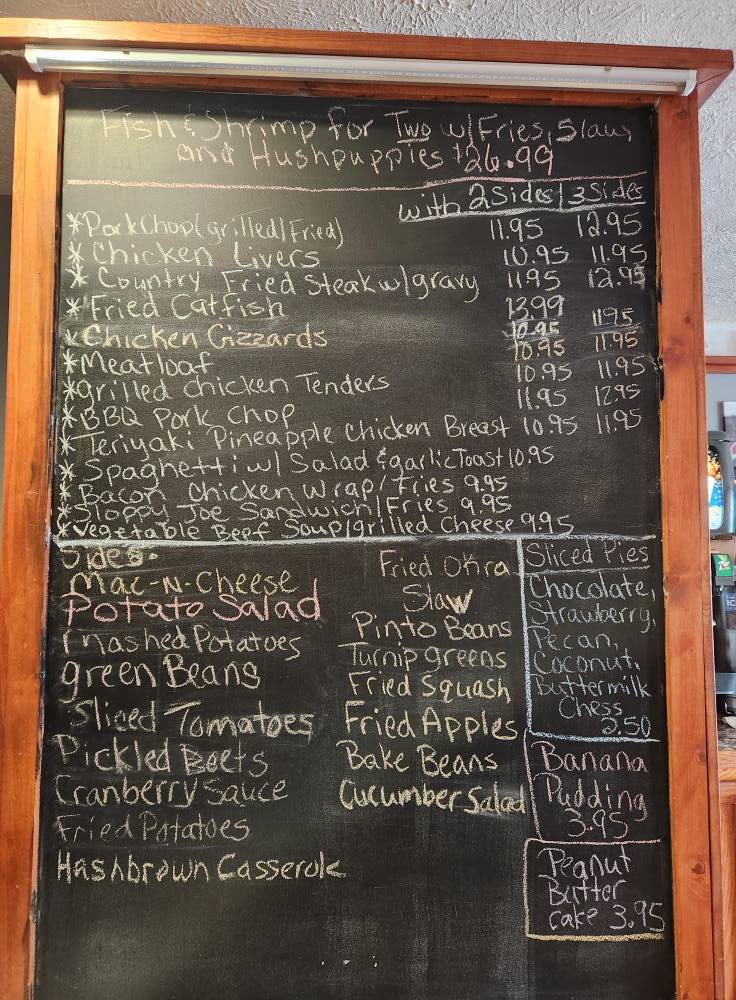 Fish & Shrimp for Two w/Fries, Slaw,
and Hushpuppies $26.99
with 2 Sides | 3 Sides
*Pork Chop (grilled/Fried) 11.95 12.95
* Chicken Livers 10.95 11.95
* Country Fried Steak w/gravy 11.95 12.95
* Fried Catfish 13.99
*Chicken Gizzards 10.95 11.95
*Meatloaf 10.95 11.95
*grilled chicken Tenders 10.95 11.95
*BBQ Pork Chop 11.95 12.95
*Teriyaki Pineapple Chicken Breast 10.95 11.95
*Spaghetti w/ Salad & garlic Toast 10.95
*Bacon Chicken Wrap/Fries 9.95
*Sloppy Joe Sandwich/Fries 9.95
*Vegetable Beef Soup/grilled Cheese 9.95
Sides:
Mac-N-Cheese
Potato Salad
Mashed Potatoes
green Beans
Sliced Tomatoes
Pickled Beets
Cranberry Sauce
Fried Potatoes
Hashbrown Casserole
Fried Okra
Slaw
Pinto Beans
Turnip greens
Fried Squash
Fried Apples
Bake Beans
Cucumber Salad
Sliced Pies
Chocolate,
Strawberry,
Pecan,
Coconut,
Buttermilk
Chess
2.50
Banana
Pudding
3.95
Peanut
Butter
cake 3.95